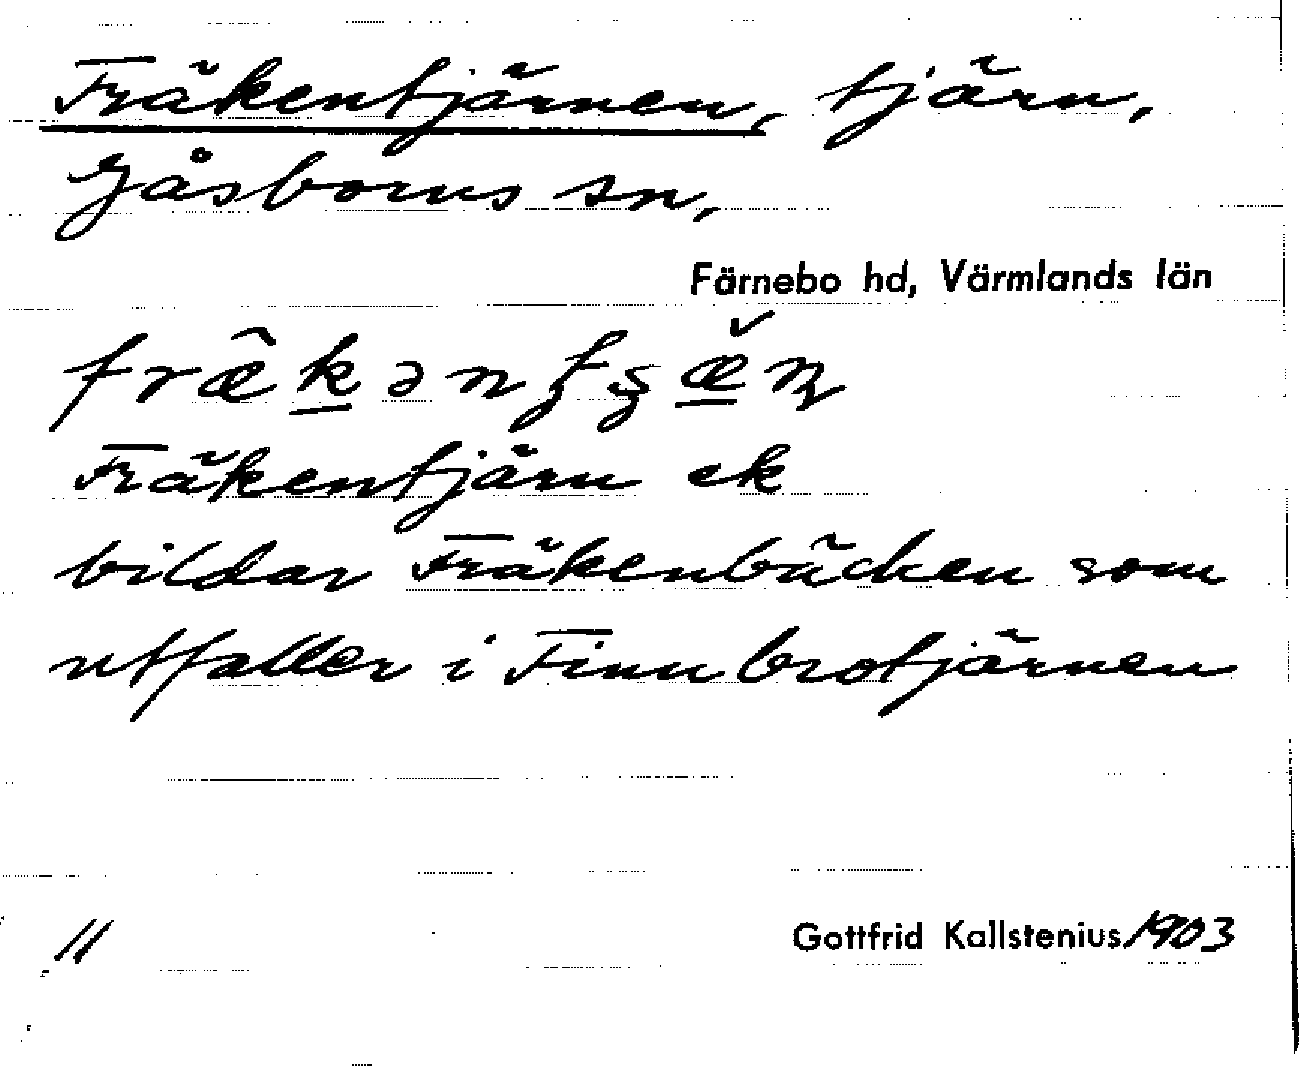 Fräkentjärnen, tjärn,
Gåsborns sn,
Färnebo hd, Värmlands län
Fräkentjärn ek
bildar Fräkenbäcken som
utfaller i Finnbrotjärnen
11 Gottfrid Kallstenius 1903